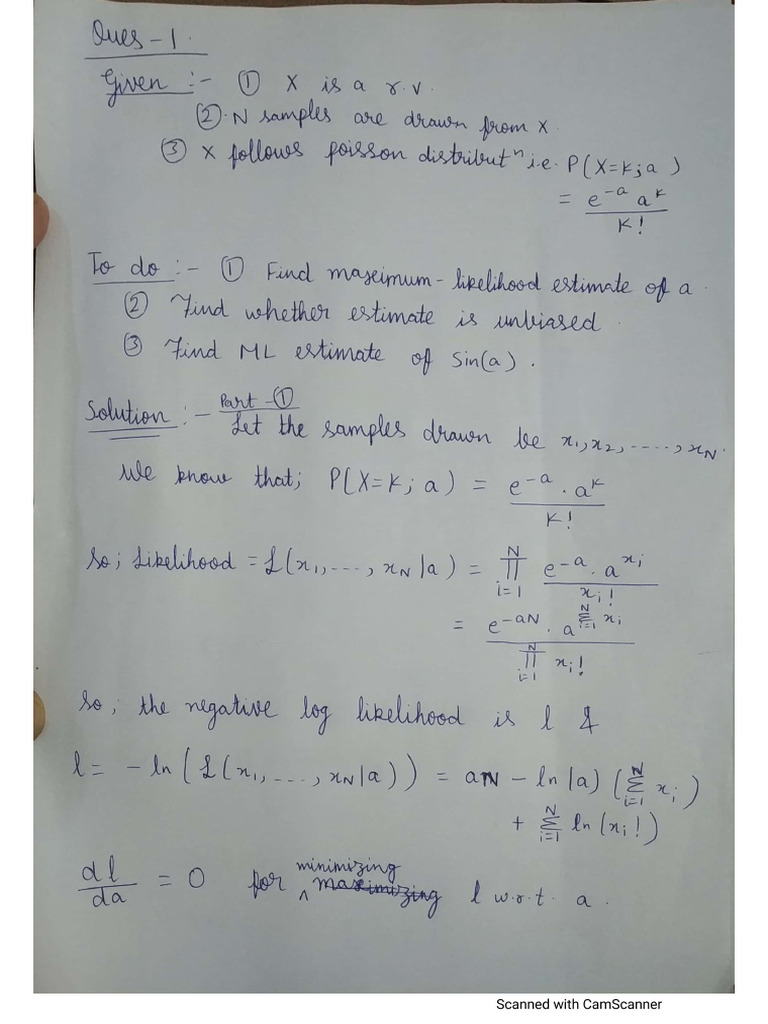 Ques - 1.
Given :- ① X is a r.v.
② N samples are drawn from X.
③ X follows poisson distributⁿ i.e. P(X=k; a)
= e^{-a} a^k / k!
To do :- ① Find maximum-likelihood estimate of a.
② Find whether estimate is unbiased.
③ Find ML estimate of Sin(a).
Solution :- Part-①
Let the samples drawn be x₁, x₂, ....., x_N.
We know that; P(X=k; a) = e^{-a} . a^k / k!
So; Likelihood = ℒ(x₁, ...., x_N | a) = ∏_{i=1}^{N} e^{-a} . a^{x_i} / x_i!
= e^{-aN} . a^{∑_{i=1}^{N} x_i} / ∏_{i=1}^{N} x_i!
So; the negative log likelihood is l &
l = - ln(ℒ(x₁, ...., x_N | a)) = aN - ln|a) (∑_{i=1}^{N} x_i)
+ ∑_{i=1}^{N} ln(x_i!)
dl/da = 0 for minimizing maximizing l w.r.t. a.
Scanned with CamScanner